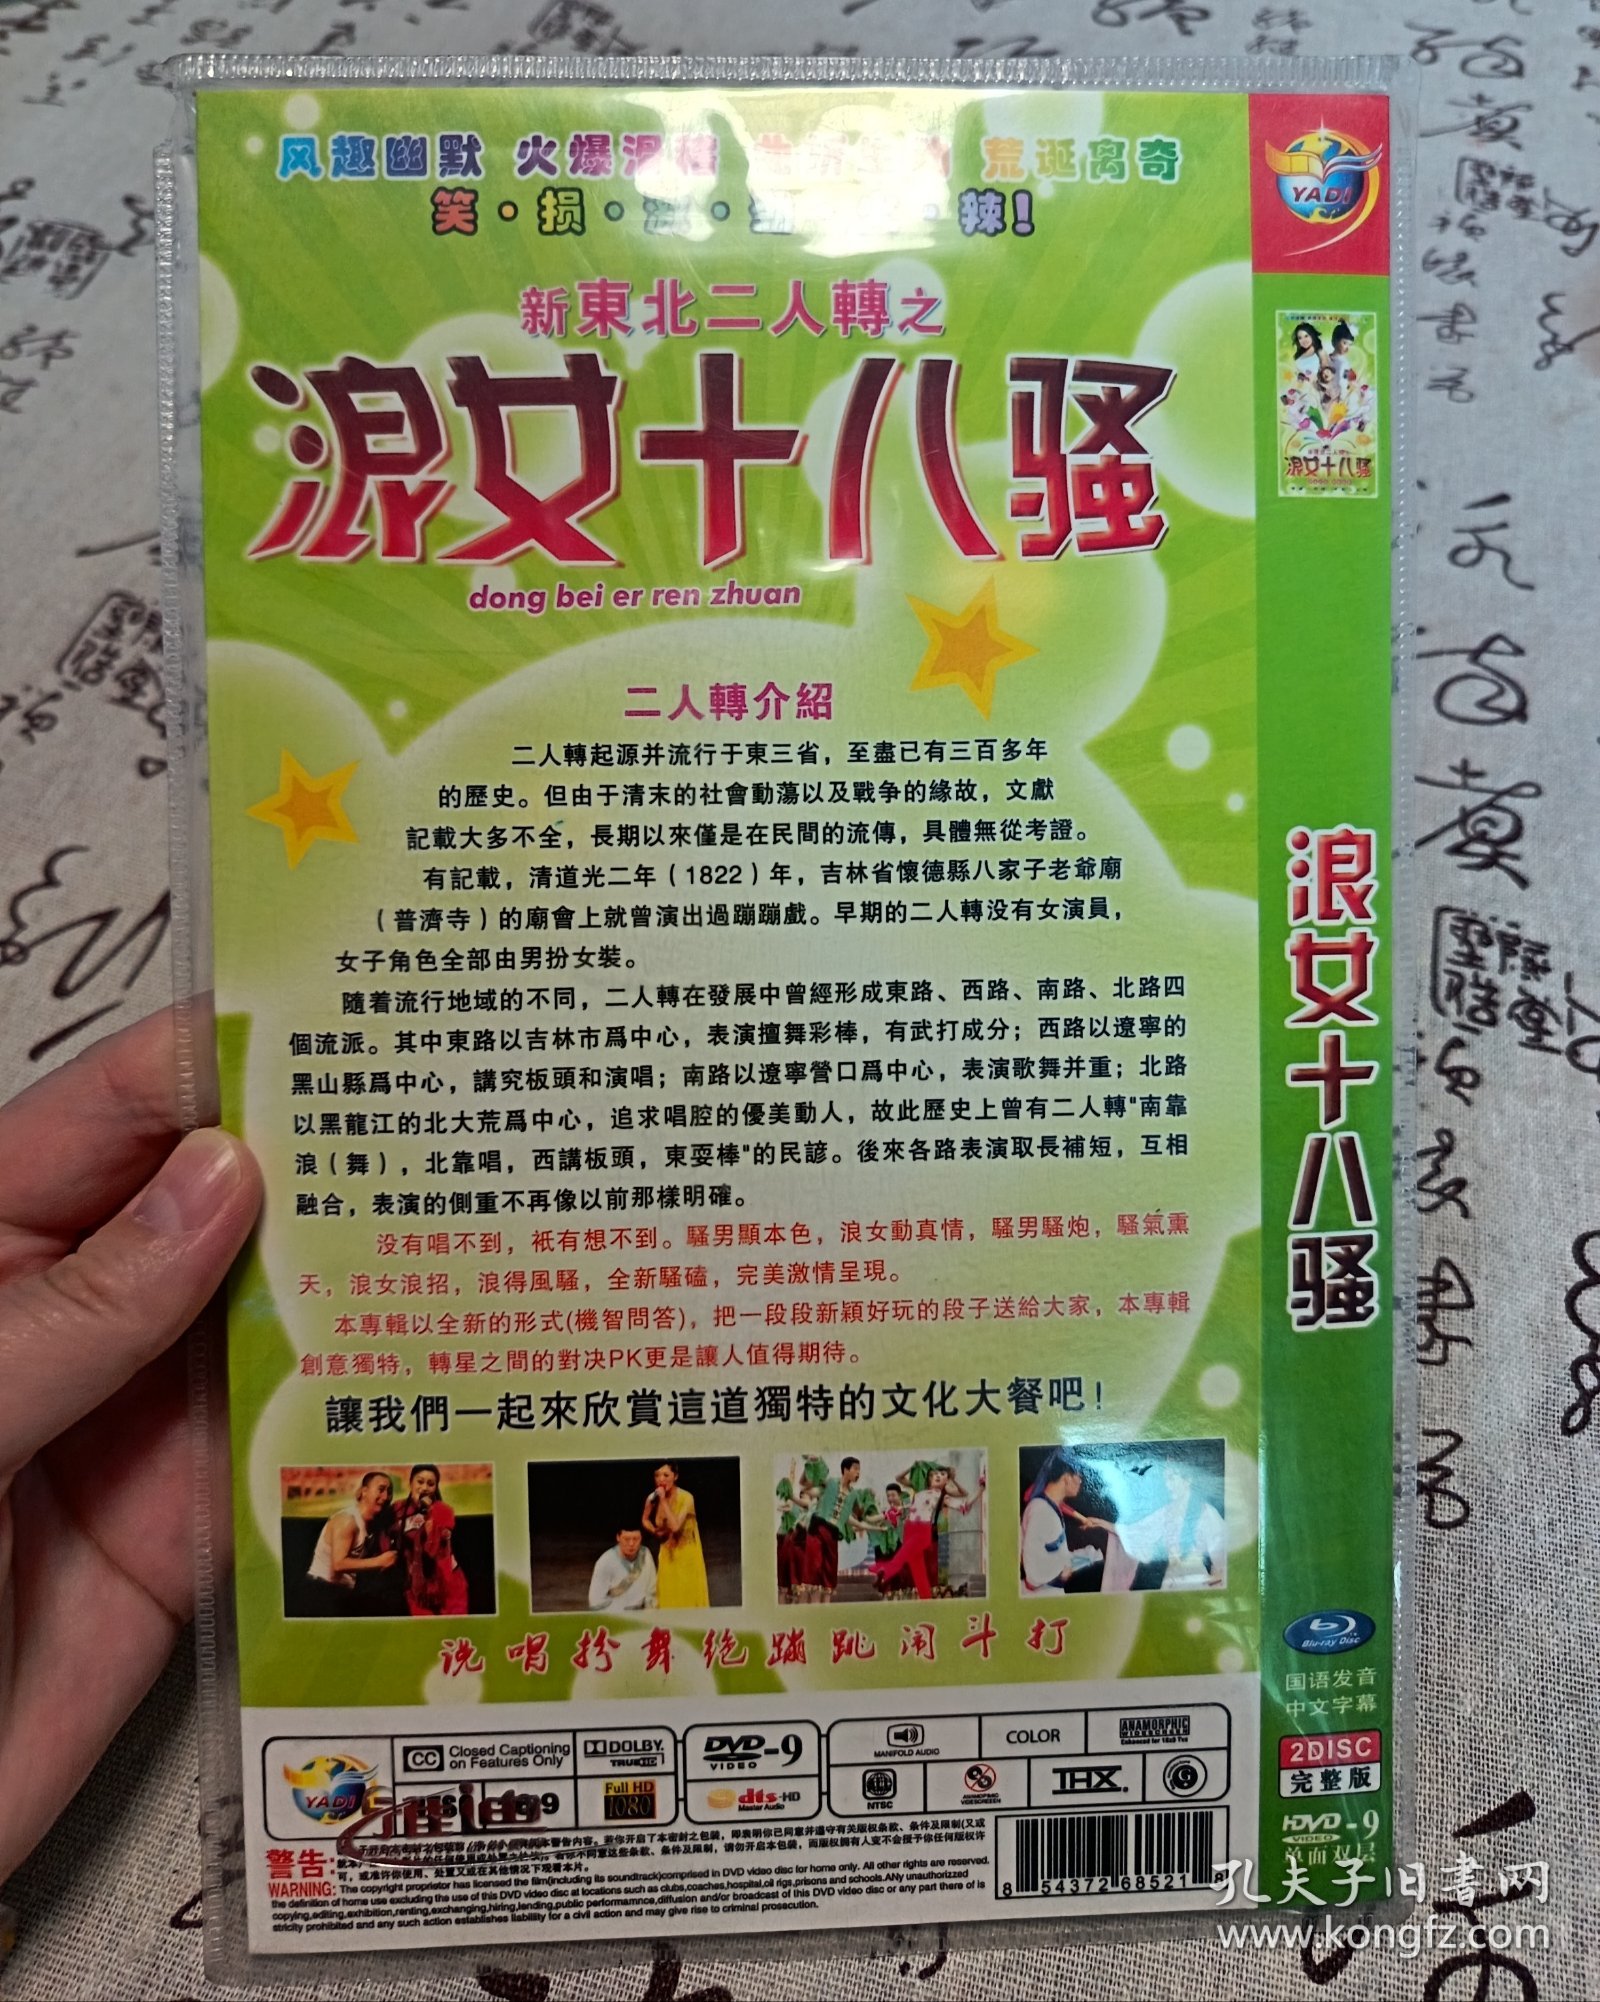 风趣幽默 火爆滑稽 荒诞离奇
笑·损·辣!
新東北二人轉之
浪女十八骚
dong bei er ren zhuan
二人轉介紹
二人轉起源并流行于東三省，至盡已有三百多年
的歷史。但由于清末的社會動蕩以及戰争的緣故，文獻
記載大多不全，長期以來僅是在民間的流傳，具體無從考證。
有記載，清道光二年（1822）年，吉林省懷德縣八家子老爺廟
（普濟寺）的廟會上就曾演出過蹦蹦戲。早期的二人轉没有女演員，
女子角色全部由男扮女裝。
隨着流行地域的不同，二人轉在發展中曾經形成東路、西路、南路、北路四
個流派。其中東路以吉林市爲中心，表演擅舞彩棒，有武打成分；西路以遼寧的
黑山縣爲中心，講究板頭和演唱；南路以遼寧營口爲中心，表演歌舞并重；北路
以黑龍江的北大荒爲中心，追求唱腔的優美動人，故此歷史上曾有二人轉"南靠
浪（舞），北靠唱，西講板頭，東耍棒"的民諺。後來各路表演取長補短，互相
融合，表演的側重不再像以前那樣明確。
没有唱不到，衹有想不到。騷男顯本色，浪女動真情，騷男騷炮，騷氣熏
天，浪女浪招，浪得風騷，全新騷磕，完美激情呈現。
本專輯以全新的形式(機智問答)，把一段段新穎好玩的段子送給大家，本專輯
創意獨特，轉星之間的對决PK更是讓人值得期待。
讓我們一起來欣賞這道獨特的文化大餐吧！
说唱扮舞绝蹦跳闹斗打
YADI
CC Closed Captioning on Features Only
DOLBY TRUEHD
Full HD 1080
16:9
雅迪
DVD VIDEO -9
dts-HD Master Audio
MANIFOLD AUDIO
COLOR
ANAMORPHIC WIDESCREEN
Enhanced for 16x9 Tvs
NTSC
THX
警告:
WARNING: The copyright proprietor has licensed the film(including its soundtrack)comprised in DVD video disc for home only. All other rights are reserved.
the definition of home use excluding the use of this DVD video disc at locations such as clubs,coaches,hospital,oil rigs,prisons and schools.ANy unauthorizzed
copying,editing,exhibition,renting,exchanging,hiring,lending,public performamnce,diffusion and/or broadcast of this DVD video disc or any part there of is
stricity prohibited and any such action establishes liability for a civil action and may give rise to criminal prosecution.
8 54372 68521
YADI
浪女十八骚
浪女十八骚
Blu-ray Disc
国语发音
中文字幕
2DISC
完整版
HDVD-9
VIDEO
单面双层
孔夫子旧书网
www.kongfz.com